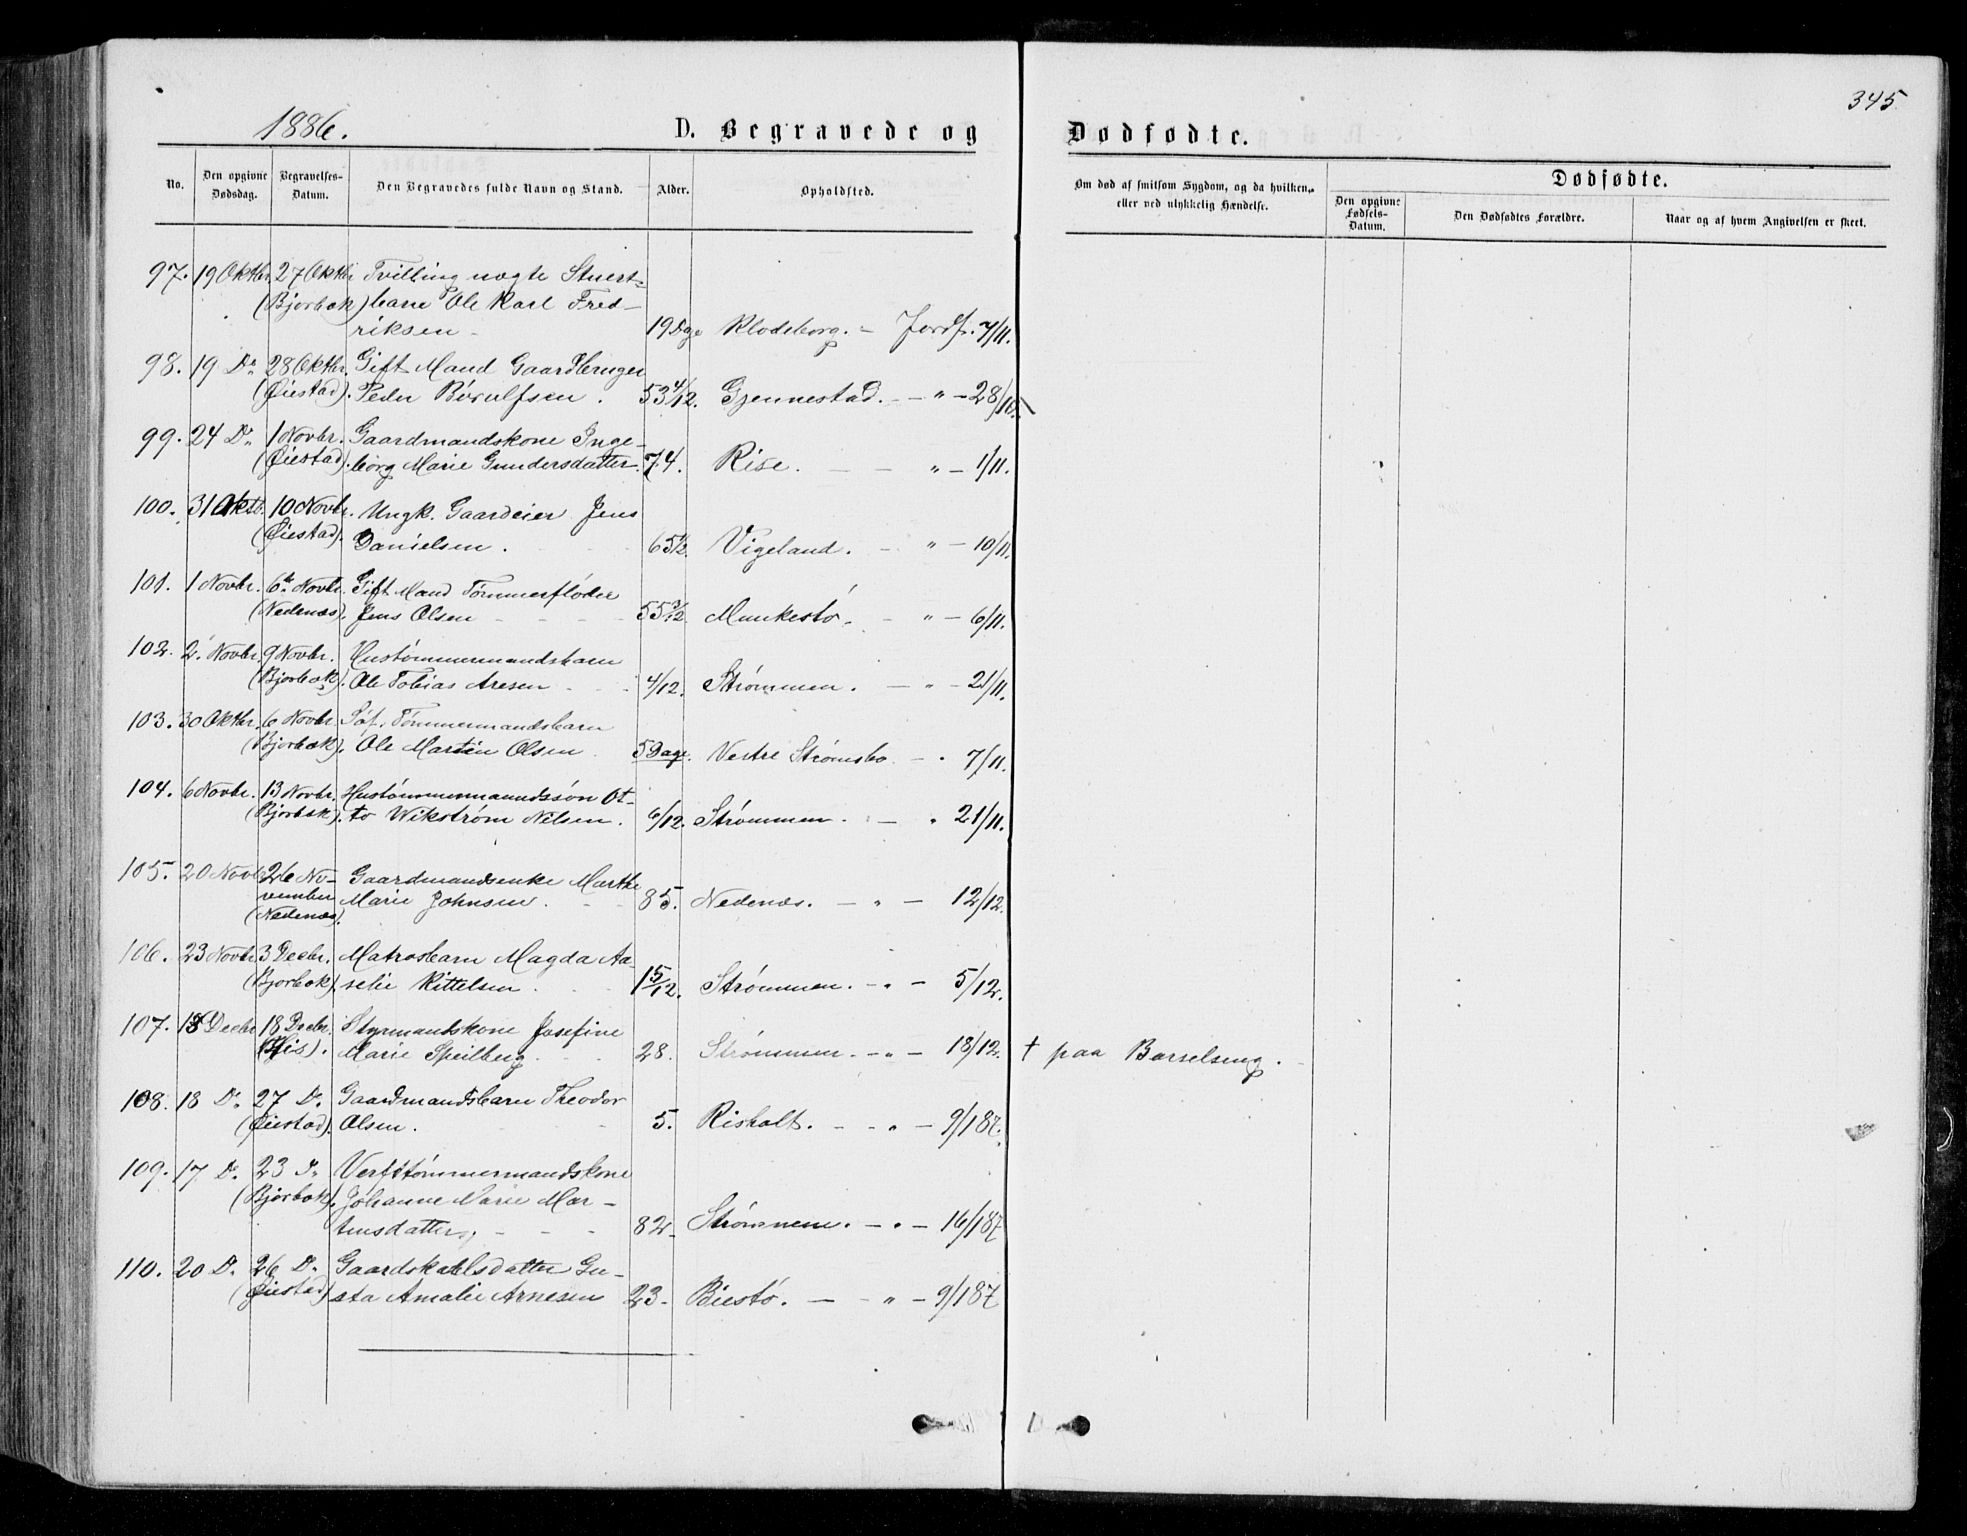 345
1886.
D. Begravede og Dødfødte.
No.
Den opgivne Dødsdag.
Begravelses-Datum.
Den Begravedes fulde Navn og Stand.
Alder.
Opholdssted.
Om død af smitsom Sygdom, og da hvilken, eller ved ulykkelig Hændelse.
Dødfødte.
Den opgivne Fødsels-Datum.
Den Dødfødtes Forældre.
Naar og af hvem Angivelsen er skeet.
97. 19 Oktbr. 27 Oktbr. Tvilling uægte Stuert-
(Bjorbæk) barn Ole Karl Fred-
riksen 19 Dge Klodeborg. – Jordf. 7/11.
98. 19 Do 28 Oktbr. Gift Mand Gaardbruger
(Øiestad). Peder Børulfsen. 53 4/12. Gjennestad. – " – 28/10.
99. 24 Do 1 Novbr. Gaardmandskone Inge-
(Øiestad). borg Marie Gundersdatter. 74. Rise. – – " – 1/11.
100. 31 Oktb. 10 Novbr. Ungk. Gaardeier Jens
(Øiestad). Danielsen. 65 1/2. Vigeland. – " – 10/11.
101. 1 Novbr. 6te Novbr. Gift Mand Tømmerfløder
(Nedenæs). Jens Olsen 55 3/12 Munkestø. – " – 6/11.
102. 2. Novbr. 9 Novbr. Hustømmermandsbarn
(Bjorbæk). Ole Tobias Aresen 4/12. Strømmen. – " – 21/11.
103. 30 Oktbr. 6 Novbr. Søf. Tømmermandsbarn
(Bjorbæk). Ole Martin Olsen 5 Dage. Vestre Strømsbo. – " 7/11.
104. 6 Novbr. 13 Novbr. Hustømmermandssøn Ot-
(Bjorbæk). to Wikstrøm Nilsen. 6/12. Strømmen. – " 21/11.
105. 20 Novb 26 No- Gaardmandsenke Marthe
vember Marie Johnsen. 85. Nedenæs. – " – 12/12.
(Nedenæs).
106. 23 Novbr. 3 Decbr. Matrosbarn Magda Aa-
(Bjorbæk). selie Kittelsen. 1 5/12. Strømmen. – " – 5/12.
107. 13 Decbr 18 Decbr. Styrmandskone Josefine
(His). Marie Speilberg. 28. Strømmen. – " – 18/12. † paa Barselseng.
108. 18 Do 27 Do Gaardmandsbarn Theodor
(Øiestad). Olsen. 5. Risholt. – " – 9/1 87.
109. 17 Do 23 Do Verftstømmermandskone
(Bjorbæk). Johanne Marie Mar-
tinsdatter. 82. Strømmen. – " – 16/1 87
110. 20 Do 26 Do Gaardskarlsdatter Gu-
(Øiestad) sta Amalie Arnesen 23. Biestø. – " – 9/1 87